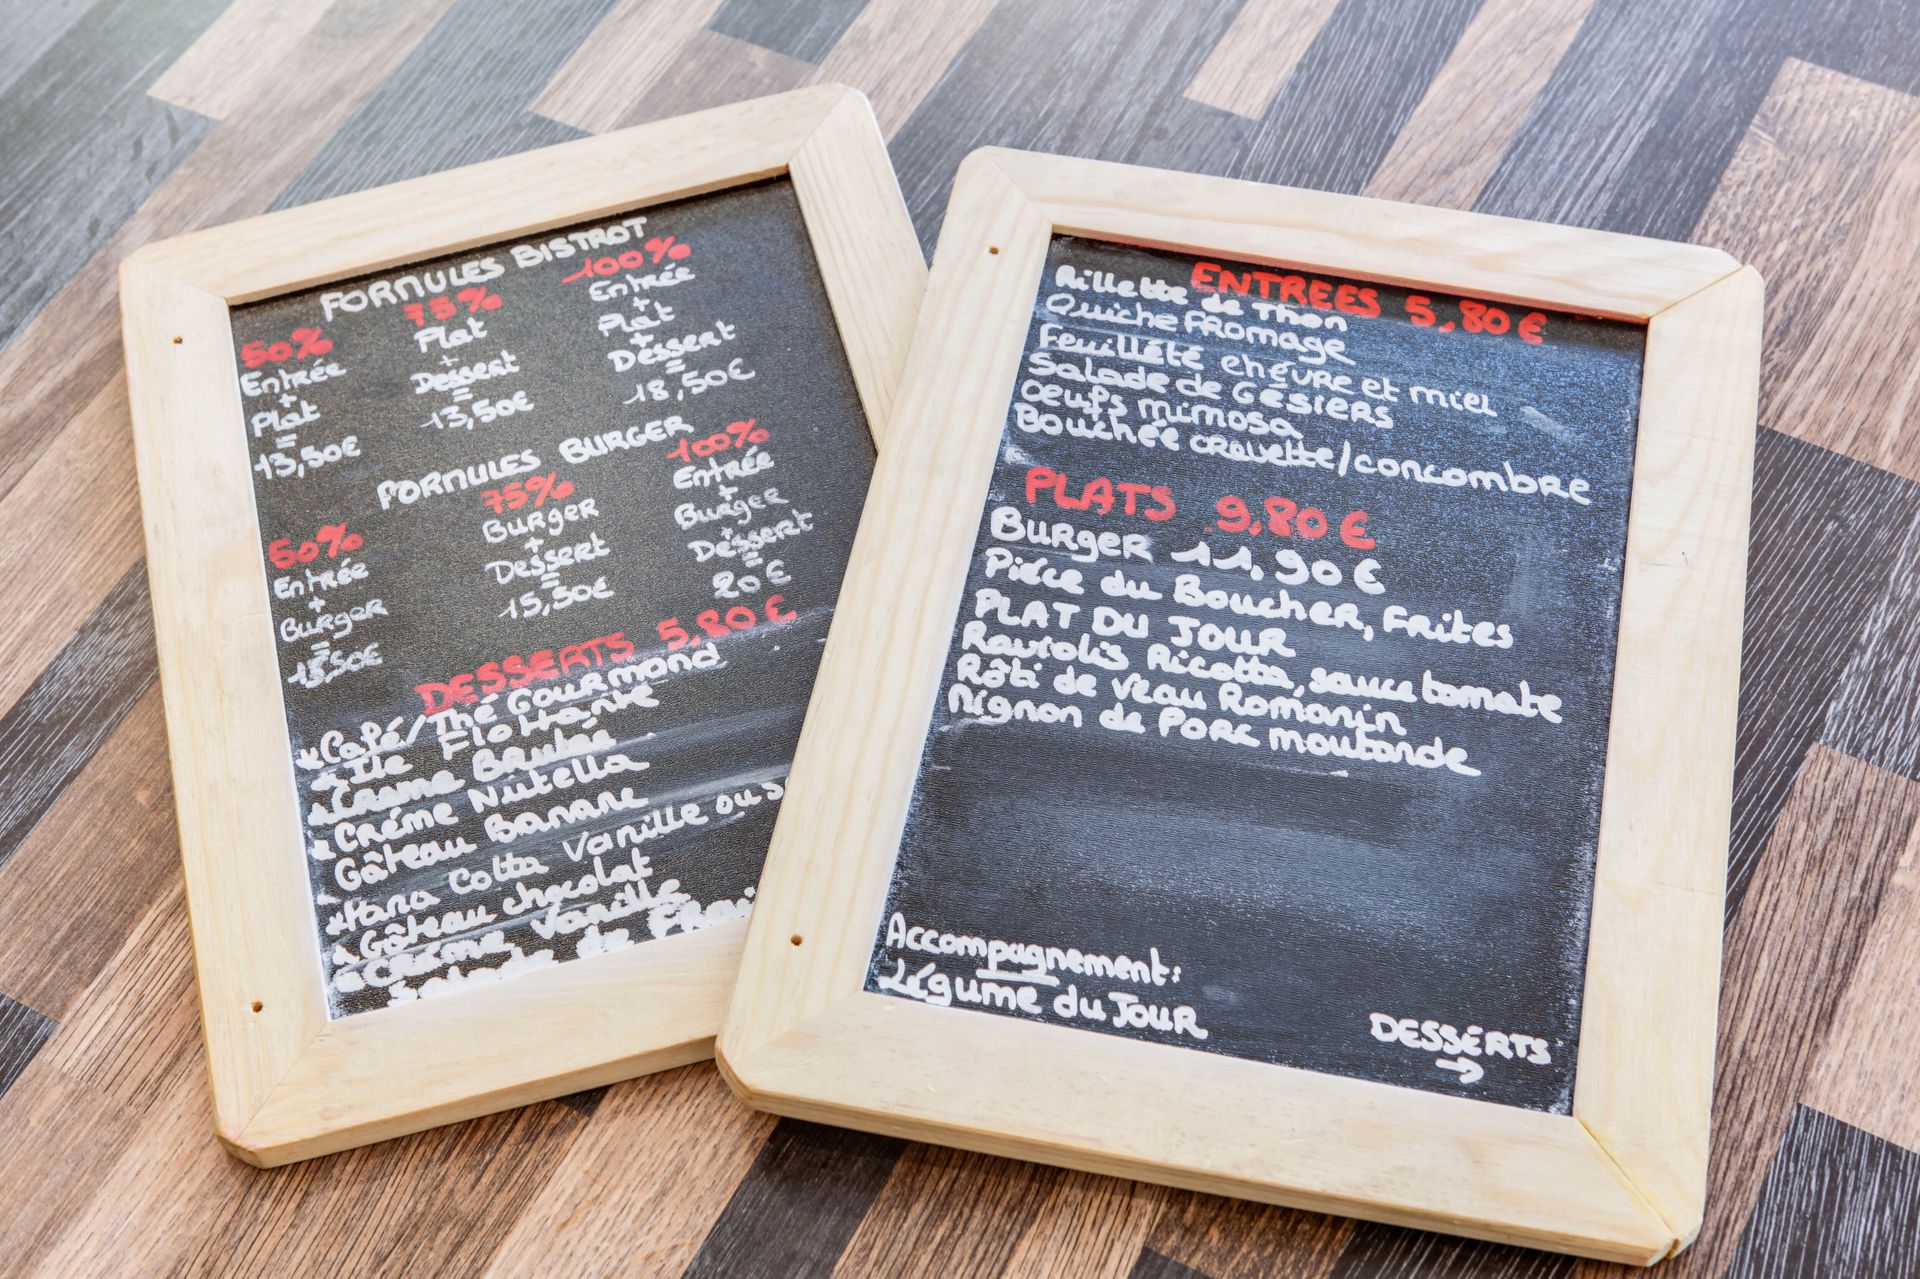 FORMULES BISTROT
50% 75% 100%
Entrée Plat Entrée
+ + +
Plat Dessert Plat
= = +
13,50€ 13,50€ Dessert
=
18,50€
FORMULES BURGER
50% 75% 100%
Entrée Burger Entrée
+ + +
Burger Dessert Burger
= = +
15,50€ Dessert
=
20€
DESSERTS 5,80€
Café/Thé Gourmand
Ile Flottante
Crème Brulée
Crème Nutella
Gâteau Banane
Pana Cotta Vanille ou
Gâteau chocolat
Crème Vanille
Salade de
ENTREES 5,80€
Rillette de Thon
Quiche FROMAGE
Feuilleté chèvre et miel
Salade de GÉSIERS
Oeufs mimosa
Bouchée crevette/concombre
PLATS 9,80€
BURGER 11,90€
Pièce du Boucher, Frites
PLAT DU JOUR
Raviolis Ricotta, sauce tomate
Rôti de veau Romarin
Mignon de PORC moutarde
Accompagnement:
Légume du JOUR
DESSERTS
→